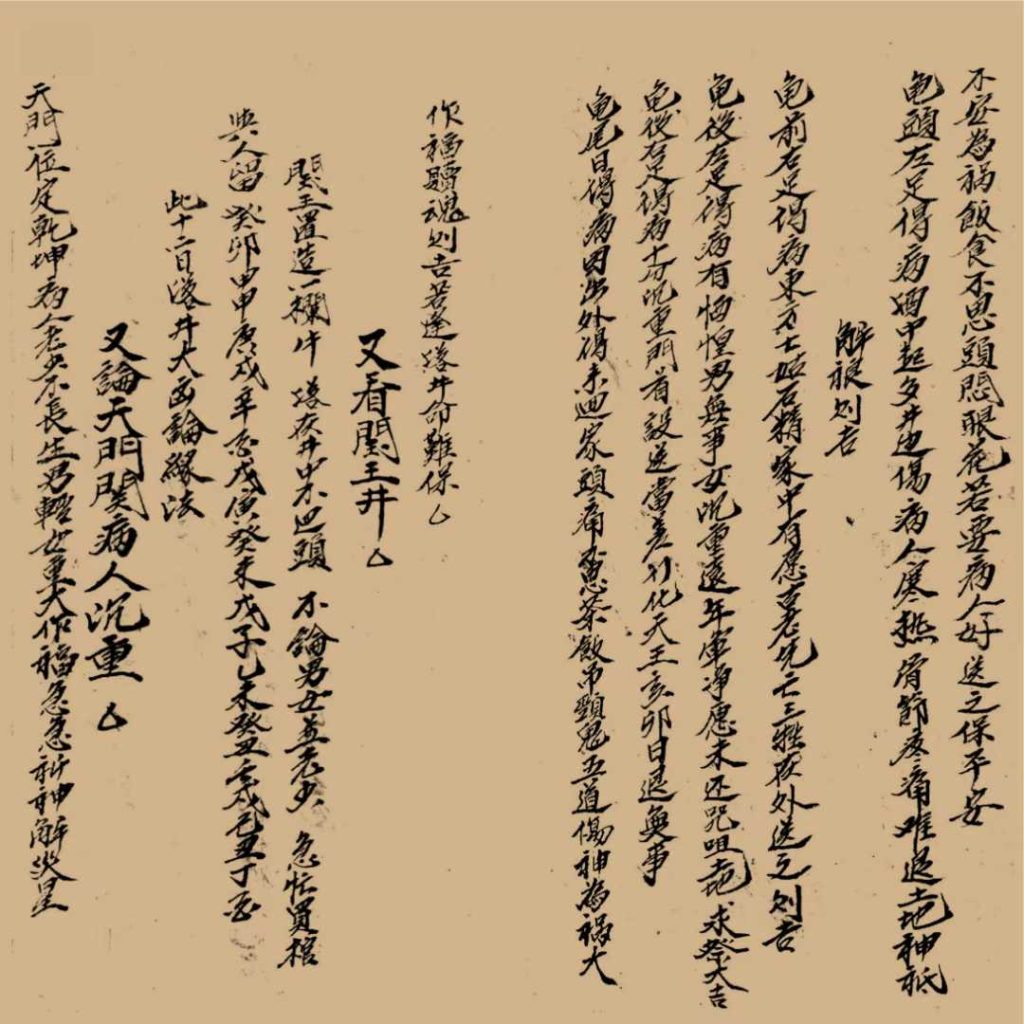 不安為禍飯食不思頭悶眼花若要病人好送之保平安
龟頭左足得病酒中起多井边傷病人寒熱骨節疼痛难退土地神祗
解禳则吉
龟前右足得病東方土姑石精家中有愿古老先亡三牲茶外送之则吉
龟後左足得病有恓惶男無事女沉重遠年軍净愿未还咒咀土地求祭大吉
龟後右足得病十分沉重門首設送當差引化天王亥卯日退無事
龟尾日得病因出外得未迴家頭痛思茶飯吊頸鬼五道傷神為禍大
作福贖魂则吉若逢落井命難保
又看閻王井
閻王置造一欄牛 落在井中不迴頭 不論男女並老少 急忙買棺
與人留 癸卯甲申庚戌辛亥戊寅癸未戊子乙未癸丑丙戌己丑丁亥
此十二日落井大凶論緣法
又論天門関病人沉重
天門位定乾坤病人老少不長生男輕女重大作福急急祈神解災星